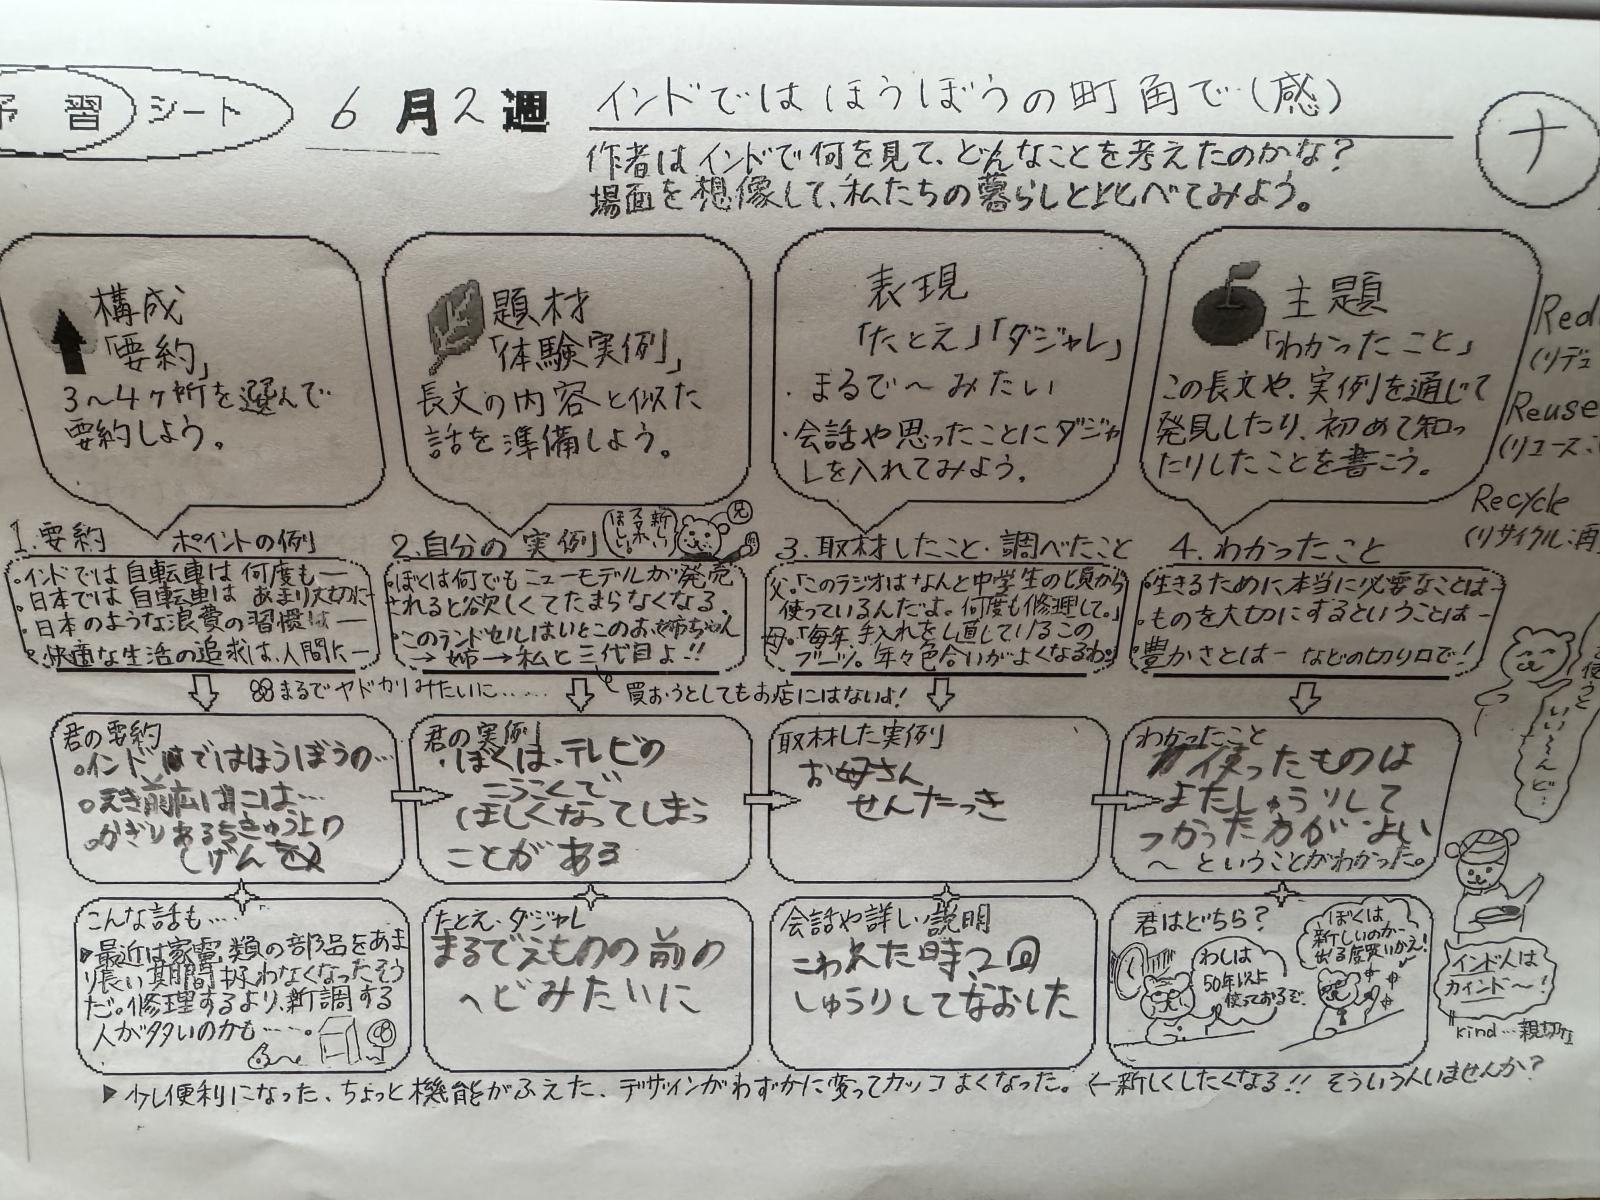 予習シート
6月2週
インドではほうぼうの町角で(感)
ナ
作者はインドで何を見て、どんなことを考えたのかな?
場面を想像して、私たちの暮らしと比べてみよう。
構成
「要約」
3〜4ヶ所を選んで
要約しよう。
題材
「体験実例」
長文の内容と似た
話を準備しよう。
表現
「たとえ」「ダジャレ」
・まるで〜みたい
・会話や思ったことにダジャ
レを入れてみよう。
主題
「わかったこと」
この長文や、実例を通じて
発見したり、初めて知っ
たりしたことを書こう。
Red
(リデュ
Reuse
(リユース:
Recycle
(リサイクル:再
1.要約 ポイントの例
・インドでは自転車は何度も―
・日本では自転車はあまり大切に
・日本のような浪費の習慣は―
・快適な生活の追求は、人間に―
2.自分の実例
新しい
スマホ
ほしい。
兄
・ぼくは何でもニューモデルが発売
されると欲しくてたまらなくなる。
・このランドセルはいとこのお姉ちゃん
→姉→私と三代目よ!!
3.取材したこと・調べたこと
父.「このラジオはなんと中学生の頃から
使っているんだよ。何度も修理して。」
母.「毎年、手入れをし直しているこの
ブーツ。年々色合いがよくなるわ。」
4.わかったこと
・生きるために、本当に必要なことは―
・ものを大切にするということは―
・豊かさとは― などの切り口で!
まるでヤドカリみたいに……
買おうとしてもお店にはないよ!
君の要約
○インドではほうぼうの…
○えき前広ばには…
○かぎりあるちきゅう上の
しげんを
君の実例
・ぼくは、テレビの
こうこくで
ほしくなってしまっ
ことがある
取材した実例
お母さん
せんたっき
わかったこと
使ったものは
またしゅうりして
つかった方がよい
〜ということがわかった。
こんな話も……
▶最近は家電類の部品をあま
り長い期間扱わなくなったそう
だ。修理するより、新調する
人が多いのかも……。
たとえ、ダジャレ
まるでえものの前の
ヘビみたいに
会話や詳しい説明
こわれた時、2回
しゅうりしてなおした
君はどちら?
わしは
50年以上
使っておるぞ。
ぼくは
新しいのが
出る度買いかえ!
インド人は
カインド〜!
kind…親切な
▶少し便利になった、ちょっと機能がふえた、デザインがわずかに変ってカッコよくなった。←新しくしたくなる!! そういう人いませんか?